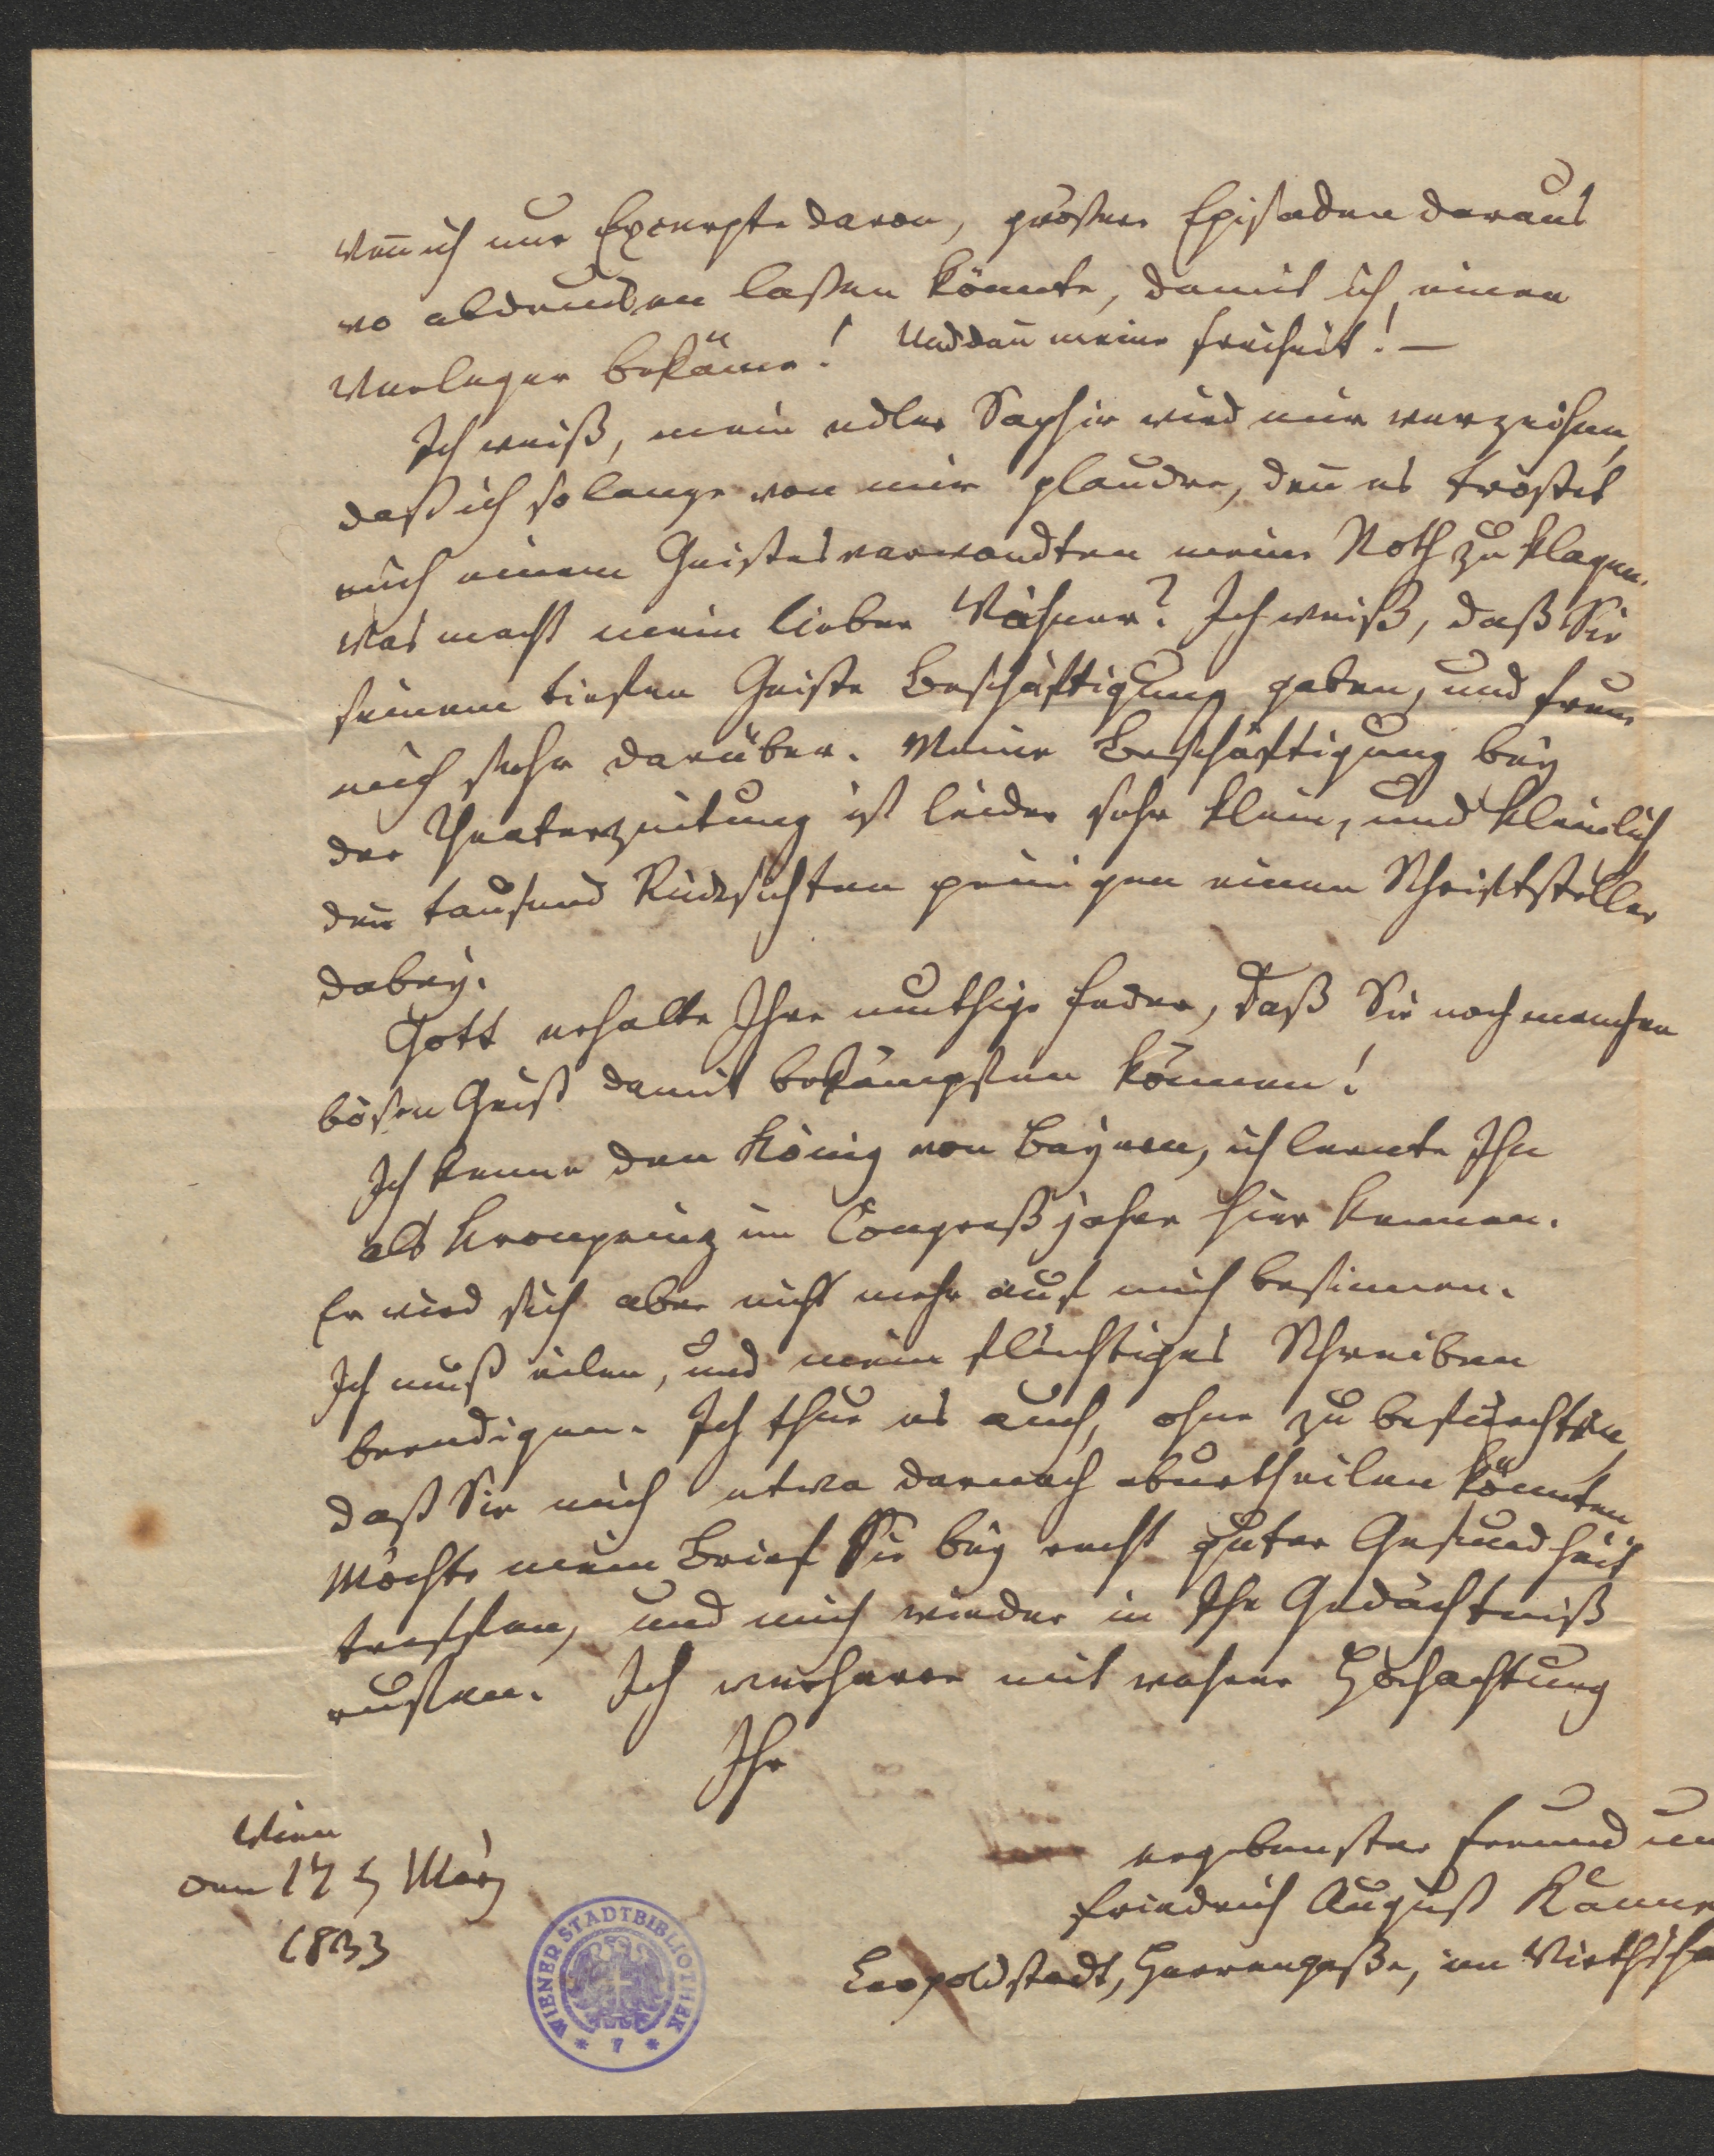 Wen̄ ich nur Excerpte davon, größere Episoden daraus
wo abdrucken laßen könnte, damit ich einen
Verleger bekäme! Und dan̄ meine Freiheit! —
Ich weiß, mein edler Saphir wird mir verzeihen,
daß ich so lange von mir plaudre, den̄ es tröstet
mich einem Geistesverwandten meine Noth zu klagen.
Was macht mein lieber Wähner? Ich weiß, daß Sie
seinem tiefen Geiste Beschäftigung geben, und freue
mich sehr darüber. Meine Beschäftigung bey
der Theaterzeitung ist leider sehr klein, und kleinlich
den̄ tausend Rücksichten peinigen einen Schriftsteller
dabey.
Gott erhalte Ihre muthige Feder, daß Sie noch manchen
bösen Geist damit bekämpfen können!
Ich kenne den König von Bayern, ich lernte Ihn
als Kronprinz im Congreßjahre hier kennen.
Er wird sich aber nicht mehr auf mich besinnen.
Ich muß eilen, und mein flüchtiges Schreiben
beendigen. Ich thue es auch, ohne zu befürchten,
daß Sie mich etwa darnach aburtheilen könnten
Möchte mein Brief Sie bey recht guter Gesundheit
treffen, und mich wieder in Ihr Gedächtniß
rufen. Ich verharre mit wahrer Hochachtung
Ihr
ergebenster Freund un
Friedrich August Kanne
Leopoldstadt, Herrengaße, im Wirthsha
Wien
den 17 März
1833
WIENER STADTBIBLIOTHEK
* 7 *